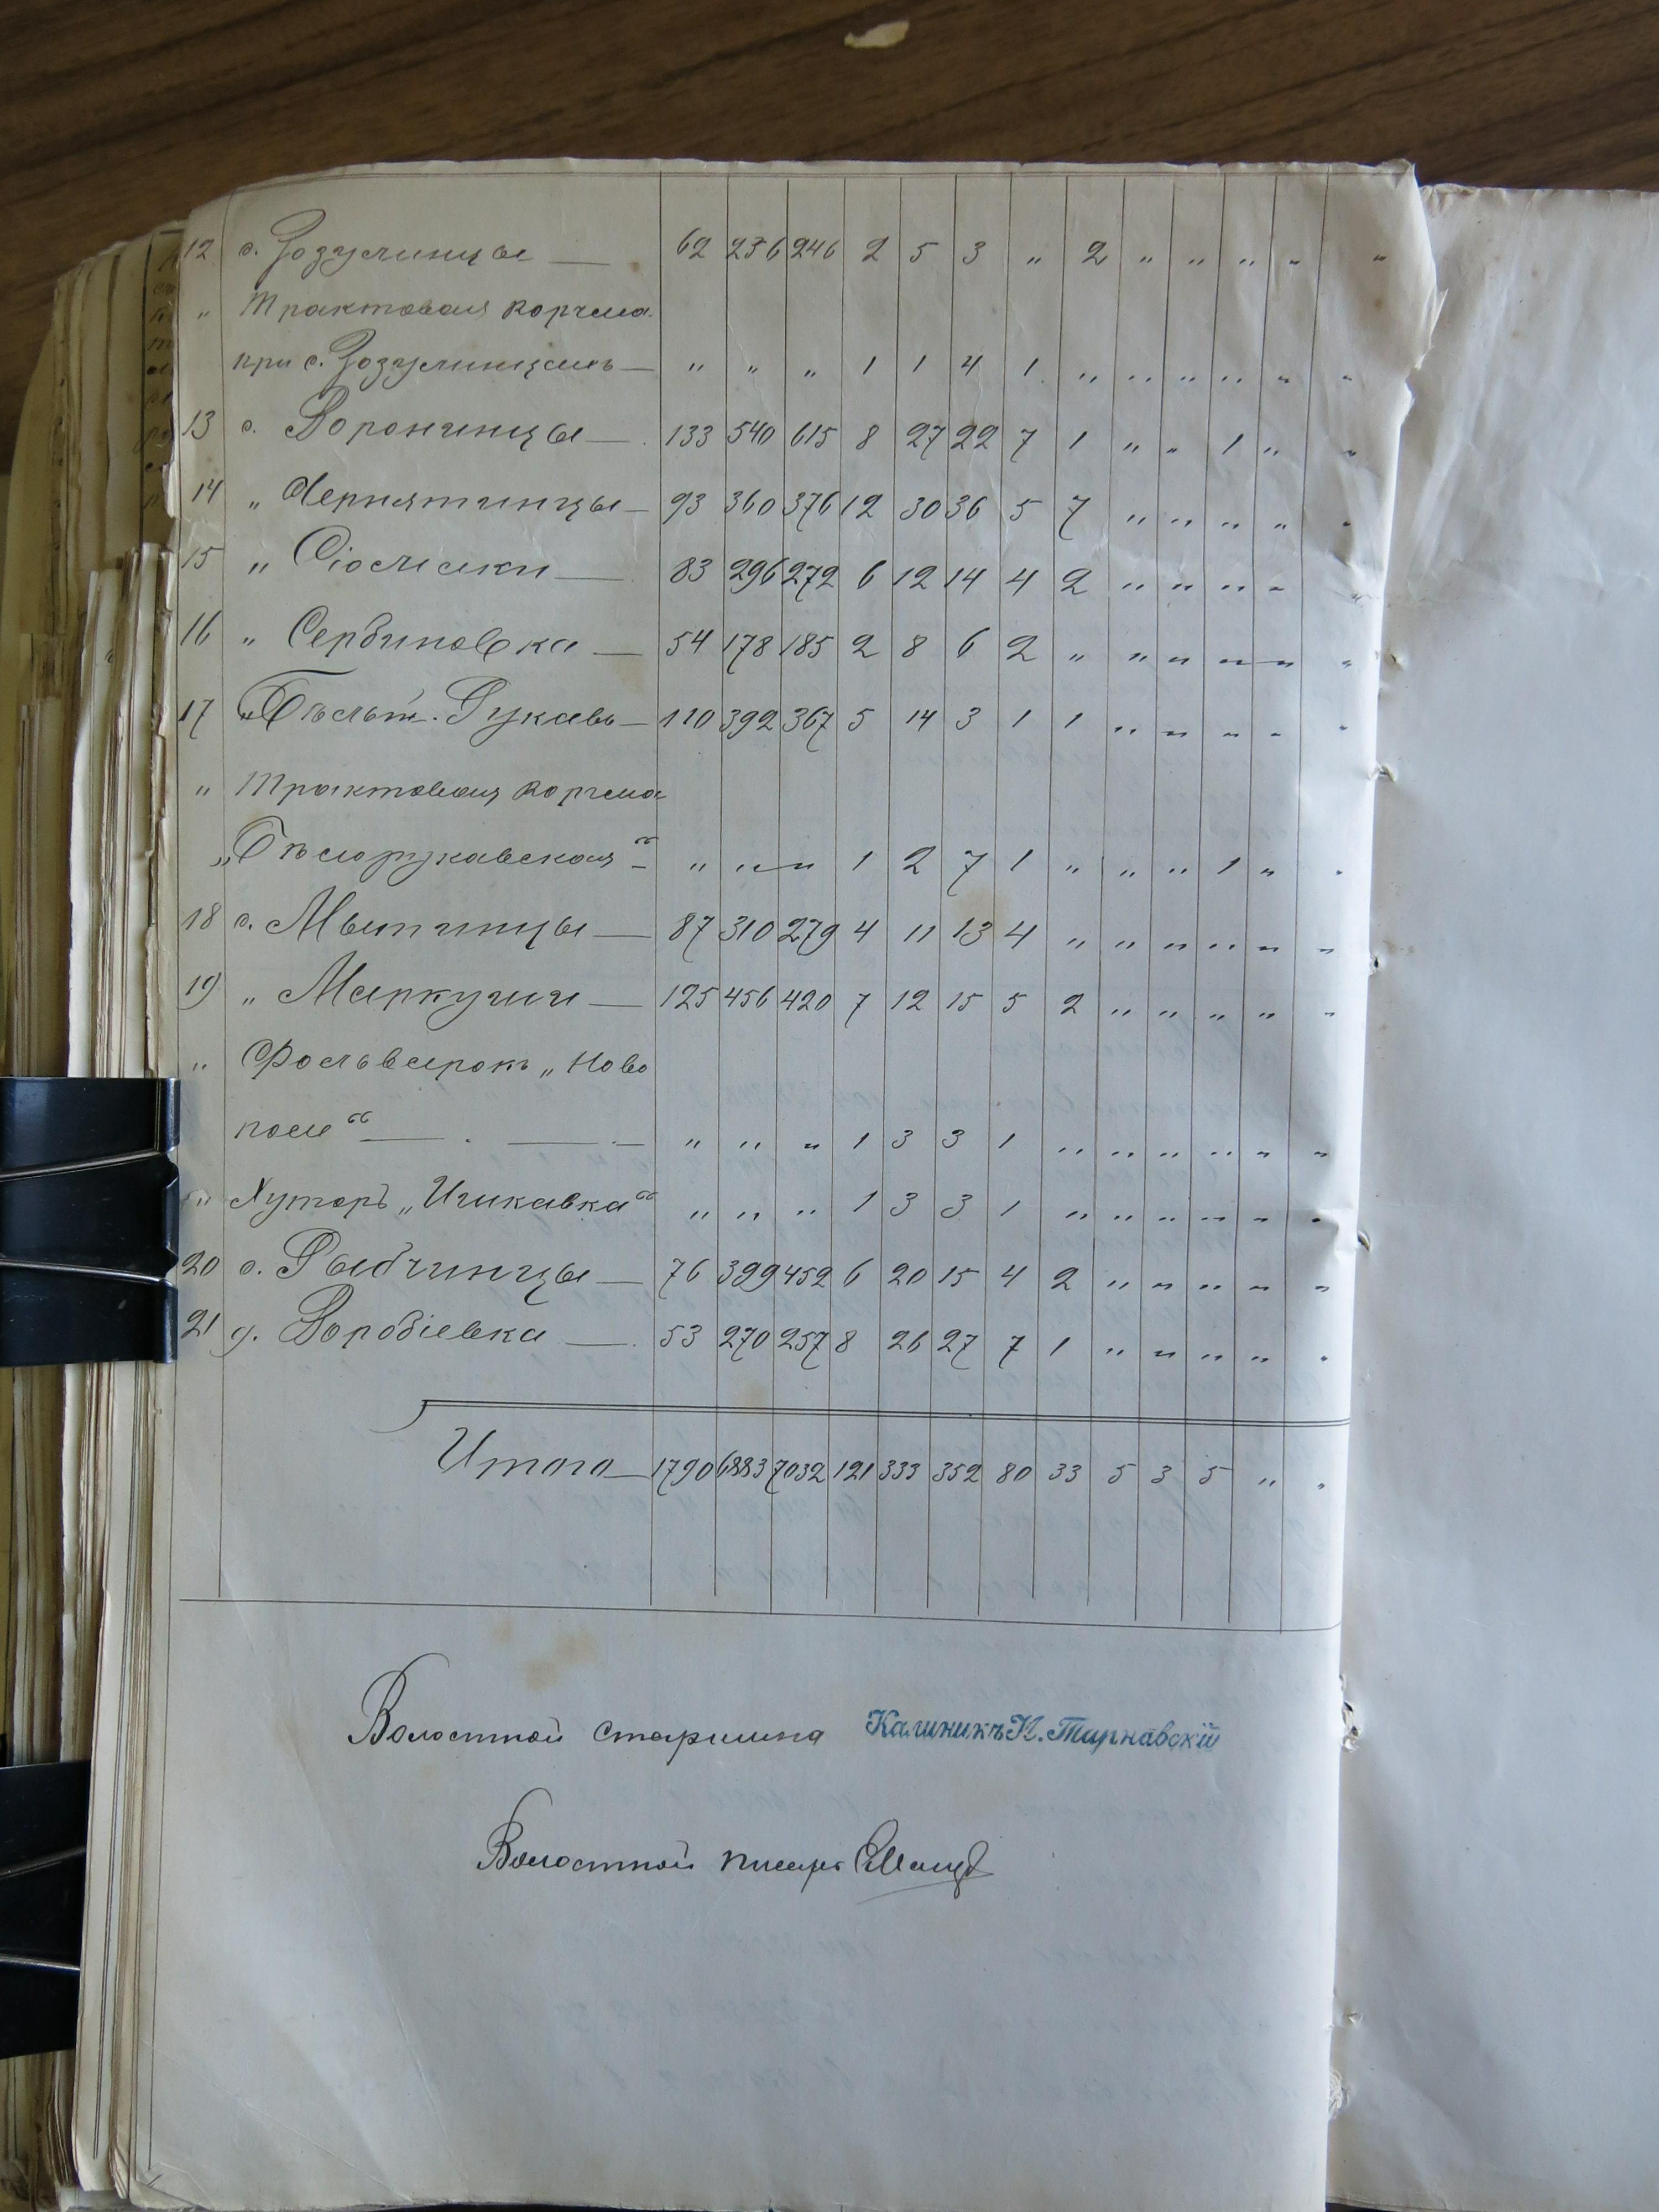 12 с. Зозулинцы — 62 236 246 2 5 3 „ 2 „ „ „ „ „
„ Трактовая корчма
при с. Зозулинцахъ — „ „ „ 1 1 4 1 „ „ „ „ „ „
13 с. Воронинцы — 133 540 615 8 27 22 7 1 „ „ 1 „ „
14 „ Чернятинцы — 93 360 376 12 30 36 5 7 „ „ „ „ „
15 „ Сіомаки — 83 296 272 6 12 14 4 2 „ „ „ „ „
16 „ Сербиновка — 54 178 185 2 8 6 2 „ „ „ „ „ „
17 „ Бѣлый Рукавъ — 110 392 367 5 14 3 1 1 „ „ „ „ „
„ Трактовая корчма
„Бѣлорукавская“ — „ „ „ 1 2 7 1 „ „ „ 1 „ „
18 с. Мытинцы — 87 310 279 4 11 13 4 „ „ „ „ „ „
19 „ Маркуши — 125 456 420 7 12 15 5 2 „ „ „ „ „
„ Фольварокъ „Ново
поле“ — „ „ „ 1 3 3 1 „ „ „ „ „ „
„ Хуторъ „Чикавка“ „ „ „ 1 3 3 1 „ „ „ „ „ „
20 с. Рыбчинцы — 76 399 452 6 20 15 4 2 „ „ „ „ „
21 д. Воробіевка — 53 270 257 8 26 27 7 1 „ „ „ „ „
Итого — 1790 6883 7032 121 333 352 80 33 5 3 5 „ „
Волостной старшина Калиникъ И. Тарнавскій
Волостной писарь